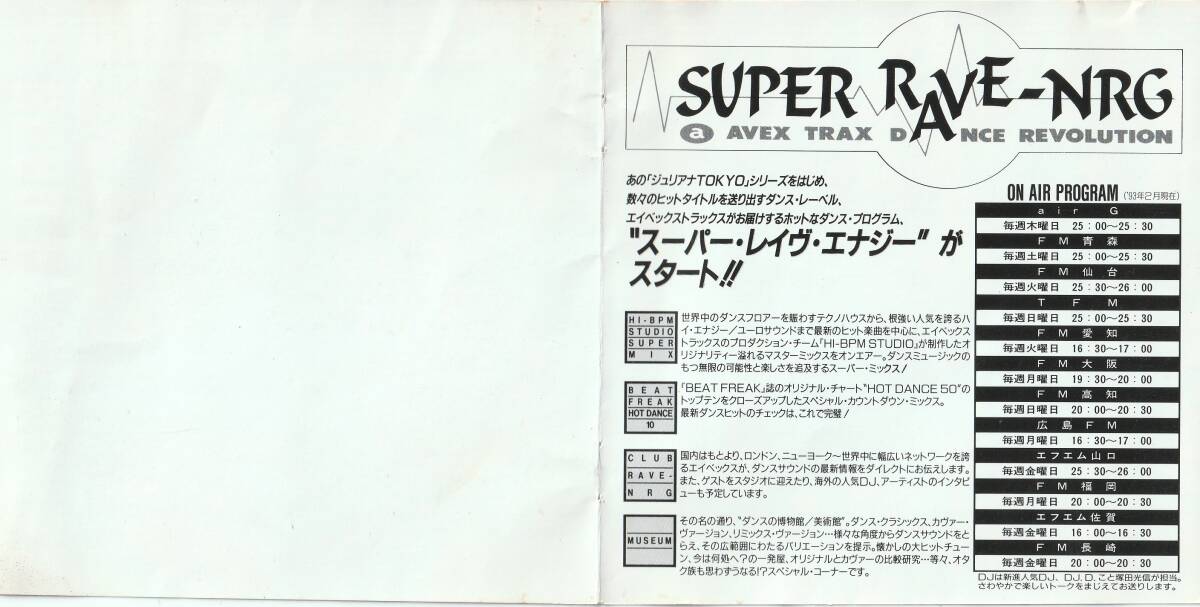 SUPER RAVE-NRG
a AVEX TRAX DANCE REVOLUTION
あの「ジュリアナTOKYO」シリーズをはじめ、
数々のヒットタイトルを送り出すダンス・レーベル、
エイベックストラックスがお届けするホットなダンス・プログラム、
"スーパー・レイヴ・エナジー" が
スタート!!
HI-BPM
STUDIO
SUPER
MIX
世界中のダンスフロアーを賑わすテクノハウスから、根強い人気を誇るハ
イ・エナジー/ユーロサウンドまで最新のヒット楽曲を中心に、エイベックス
トラックスのプロダクション・チーム「HI-BPM STUDIO」が制作したオ
リジナリティー溢れるマスターミックスをオンエアー。ダンスミュージックの
もつ無限の可能性と楽しさを追及するスーパー・ミックス!
BEAT
FREAK
HOT DANCE
10
「BEAT FREAK」誌のオリジナル・チャート"HOT DANCE 50"の
トップテンをクローズアップしたスペシャル・カウントダウン・ミックス。
最新ダンスヒットのチェックは、これで完璧!
CLUB
RAVE-
NRG
国内はもとより、ロンドン、ニューヨーク〜世界中に幅広いネットワークを誇
るエイベックスが、ダンスサウンドの最新情報をダイレクトにお伝えします。
また、ゲストをスタジオに迎えたり、海外の人気DJ、アーティストのインタビ
ューも予定しています。
MUSEUM
その名の通り、"ダンスの博物館/美術館"。ダンス・クラシックス、カヴァー・
ヴァージョン、リミックス・ヴァージョン…様々な角度からダンスサウンドをと
らえ、その広範囲にわたるバリエーションを提示。懐かしの大ヒットチュー
ン、今は何処へ?の一発屋、オリジナルとカヴァーの比較研究…等々、オタ
ク族も思わずうなる!?スペシャル・コーナーです。
ON AIR PROGRAM ('93年2月現在)
air G
毎週木曜日 25:00〜25:30
FM青森
毎週土曜日 25:00〜25:30
FM仙台
毎週火曜日 25:30〜26:00
TFM
毎週日曜日 25:00〜25:30
FM愛知
毎週火曜日 16:30〜17:00
FM大阪
毎週月曜日 19:30〜20:00
FM高知
毎週日曜日 20:00〜20:30
広島FM
毎週月曜日 16:30〜17:00
エフエム山口
毎週金曜日 25:30〜26:00
FM福岡
毎週月曜日 20:00〜20:30
エフエム佐賀
毎週金曜日 16:00〜16:30
FM長崎
毎週金曜日 20:00〜20:30
DJは新進人気DJ、DJ.D.こと塚田光信が担当。
さわやかで楽しいトークをまじえてお送りします。